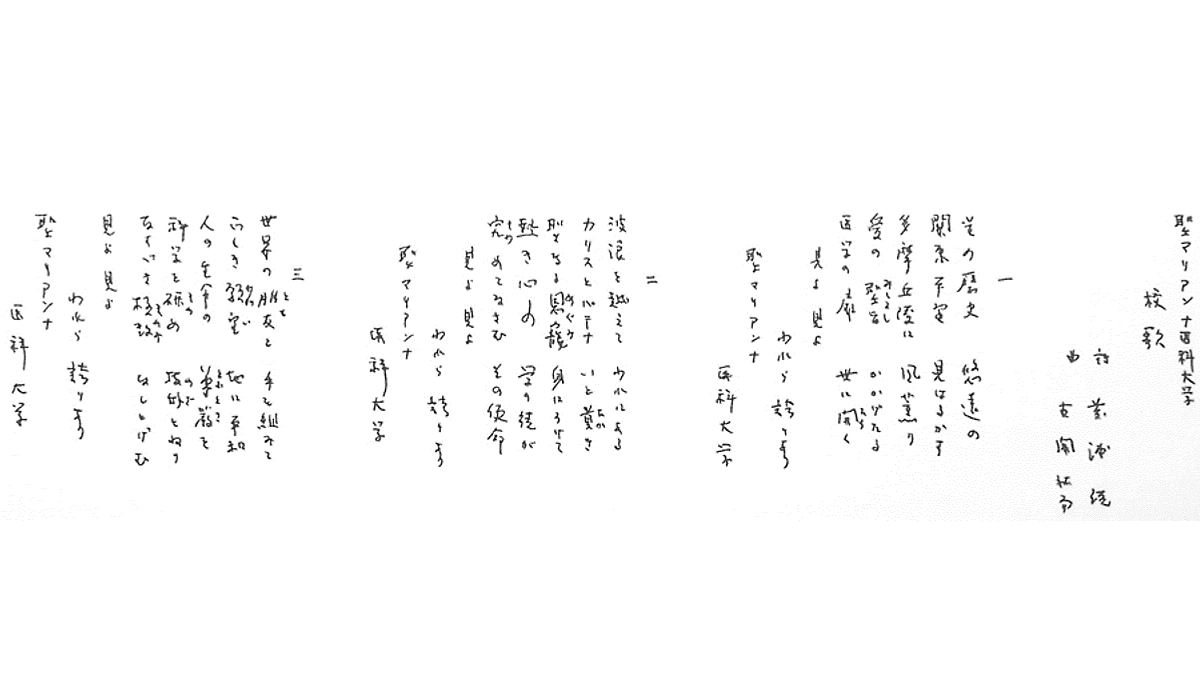 聖マリアンナ医科大学
校歌
詩 薮浦徳
曲 古関裕而
一
光の歴史 悠遠の
関東平野 見はるかす
多摩丘陵に 風薫り
愛の聖旨 かかげたる
医学の扉 世に開く
見よ 見よ
われら 誇りあり
聖マリアンナ
医科大学
二
波浪を越えて われにある
カリストパテナ いと貴き
聖なる恩寵 身にうけて
熱き心の 学の徒が
究めてすすむ その使命
見よ 見よ
われら 誇りあり
聖マリアンナ
医科大学
三
世界の朋友と 手を組みて
人の生命の 尊厳を
科学を研め 技をねり
なしとげむ
見よ 見よ
われら 誇りあり
聖マリアンナ
医科大学